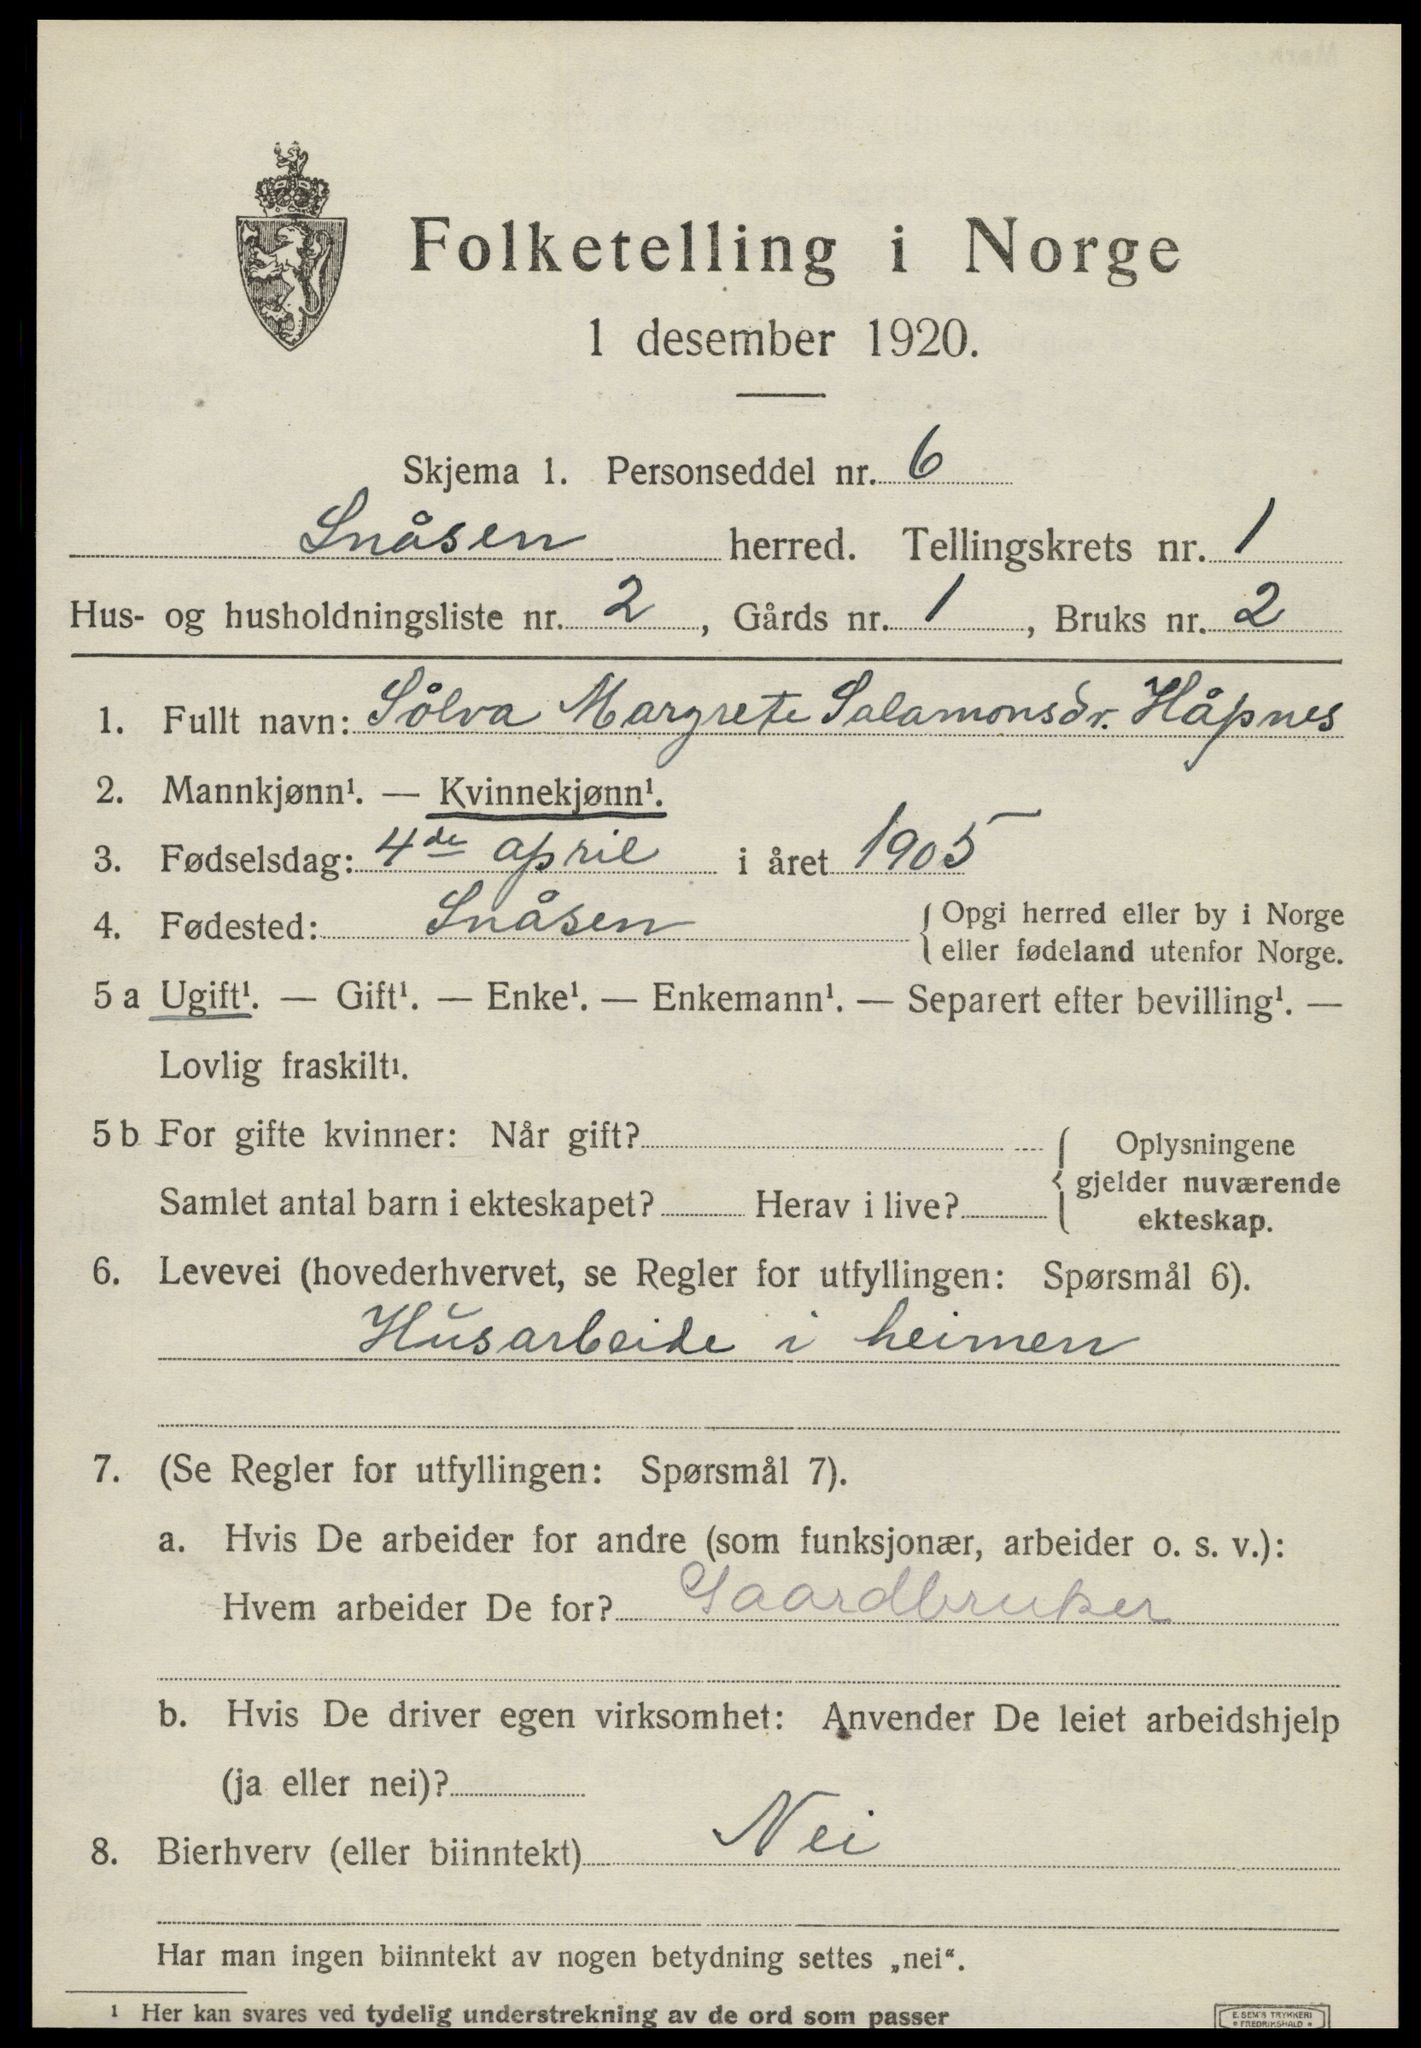 Folketelling i Norge
1 desember 1920.
Skjema 1. Personseddel nr. 6
Snåsen herred. Tellingskrets nr. 1
Hus- og husholdningsliste nr. 2, Gårds nr. 1, Bruks nr. 2
1. Fullt navn: Sølva Margrete Salamonsdr. Håpnes
2. Mannkjønn¹. — Kvinnekjønn¹.
3. Fødselsdag: 4de april i året 1905
4. Fødested: Snåsen { Opgi herred eller by i Norge
eller fødeland utenfor Norge.
5 a Ugift¹. — Gift¹. — Enke¹. — Enkemann¹. — Separert efter bevilling¹. —
Lovlig fraskilt¹.
5 b For gifte kvinner: Når gift?
Samlet antal barn i ekteskapet? Herav i live?
{ Oplysningene
gjelder nuværende
ekteskap.
6. Levevei (hovederhvervet, se Regler for utfyllingen: Spørsmål 6).
Husarbeide i heimen
7. (Se Regler for utfyllingen: Spørsmål 7).
a. Hvis De arbeider for andre (som funksjonær, arbeider o. s. v.):
Hvem arbeider De for? Gaardbruker
b. Hvis De driver egen virksomhet: Anvender De leiet arbeidshjelp
(ja eller nei)?
8. Bierhverv (eller biinntekt) Nei
Har man ingen biinntekt av nogen betydning settes „nei“.
¹ Her kan svares ved tydelig understrekning av de ord som passer
E. SEM'S TRYKKERI
FREDRIKSHALD